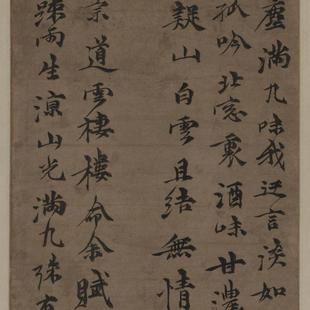 塵滿几咲我迂言淡如
孤吟北窓裏酒味甘濃
疑山白雲且結無情
宗道雲棲樓命余賦
踈雨生涼山光滿几殊